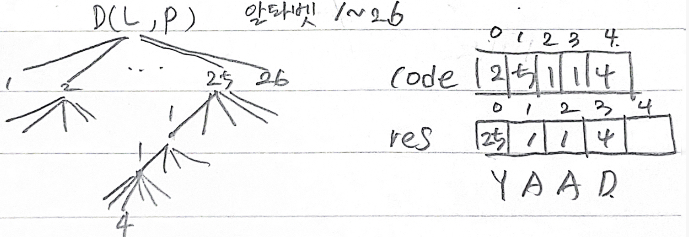 D(L,P) 알파벳 1~26
1 2 ... 25 26
0 1 2 3 4
code 2 5 1 1 4
1
0 1 2 3 4
res 25 1 1 4
1
Y A A D
4